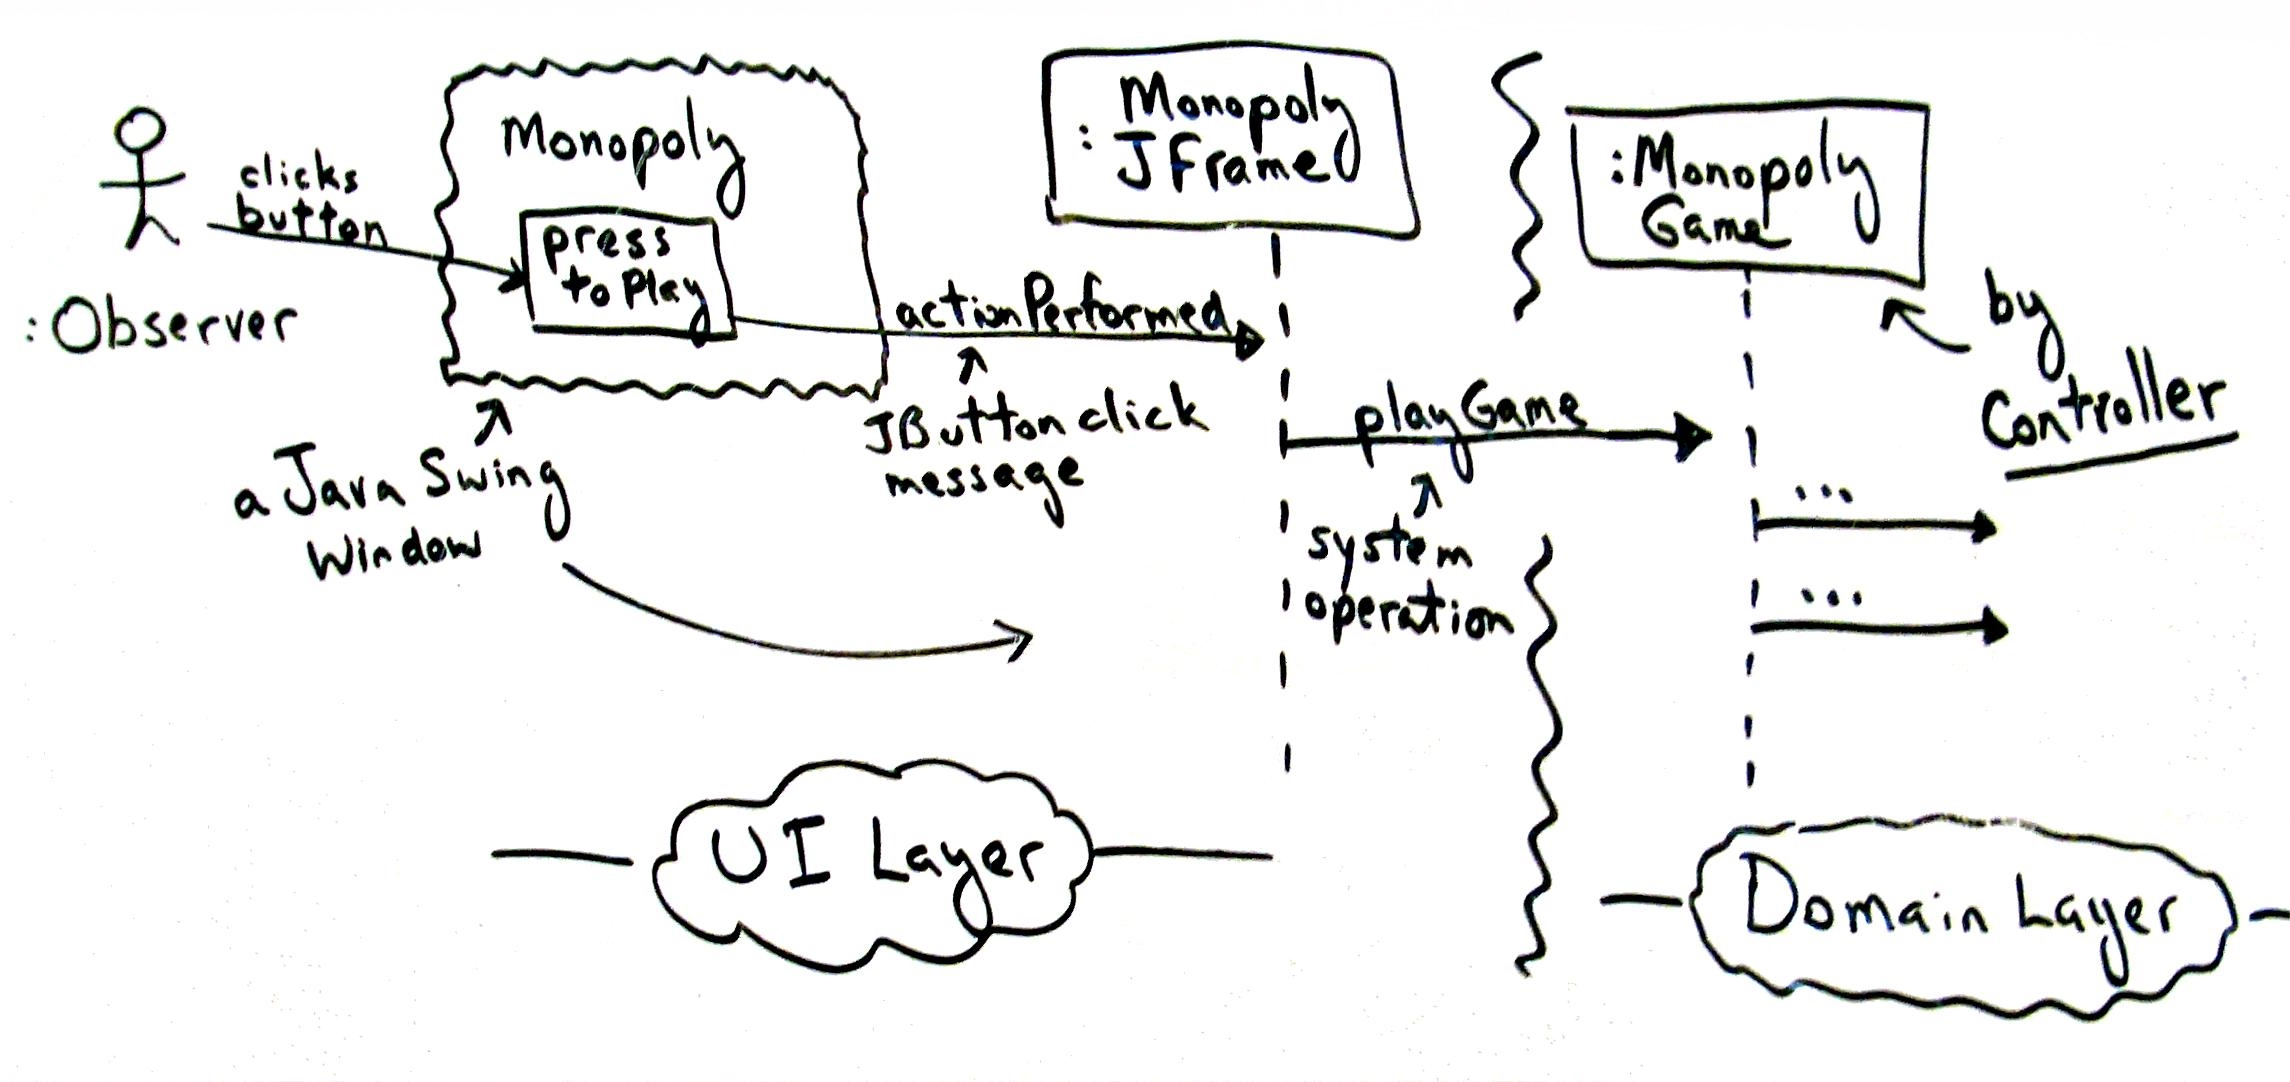 clicks
button
:Observer
Monopoly
press
to Play
a Java Swing
Window
actionPerformed
JButton click
message
Monopoly
: JFrame
playGame
system
operation
:Monopoly
Game
by
Controller
...
...
UI Layer
Domain Layer